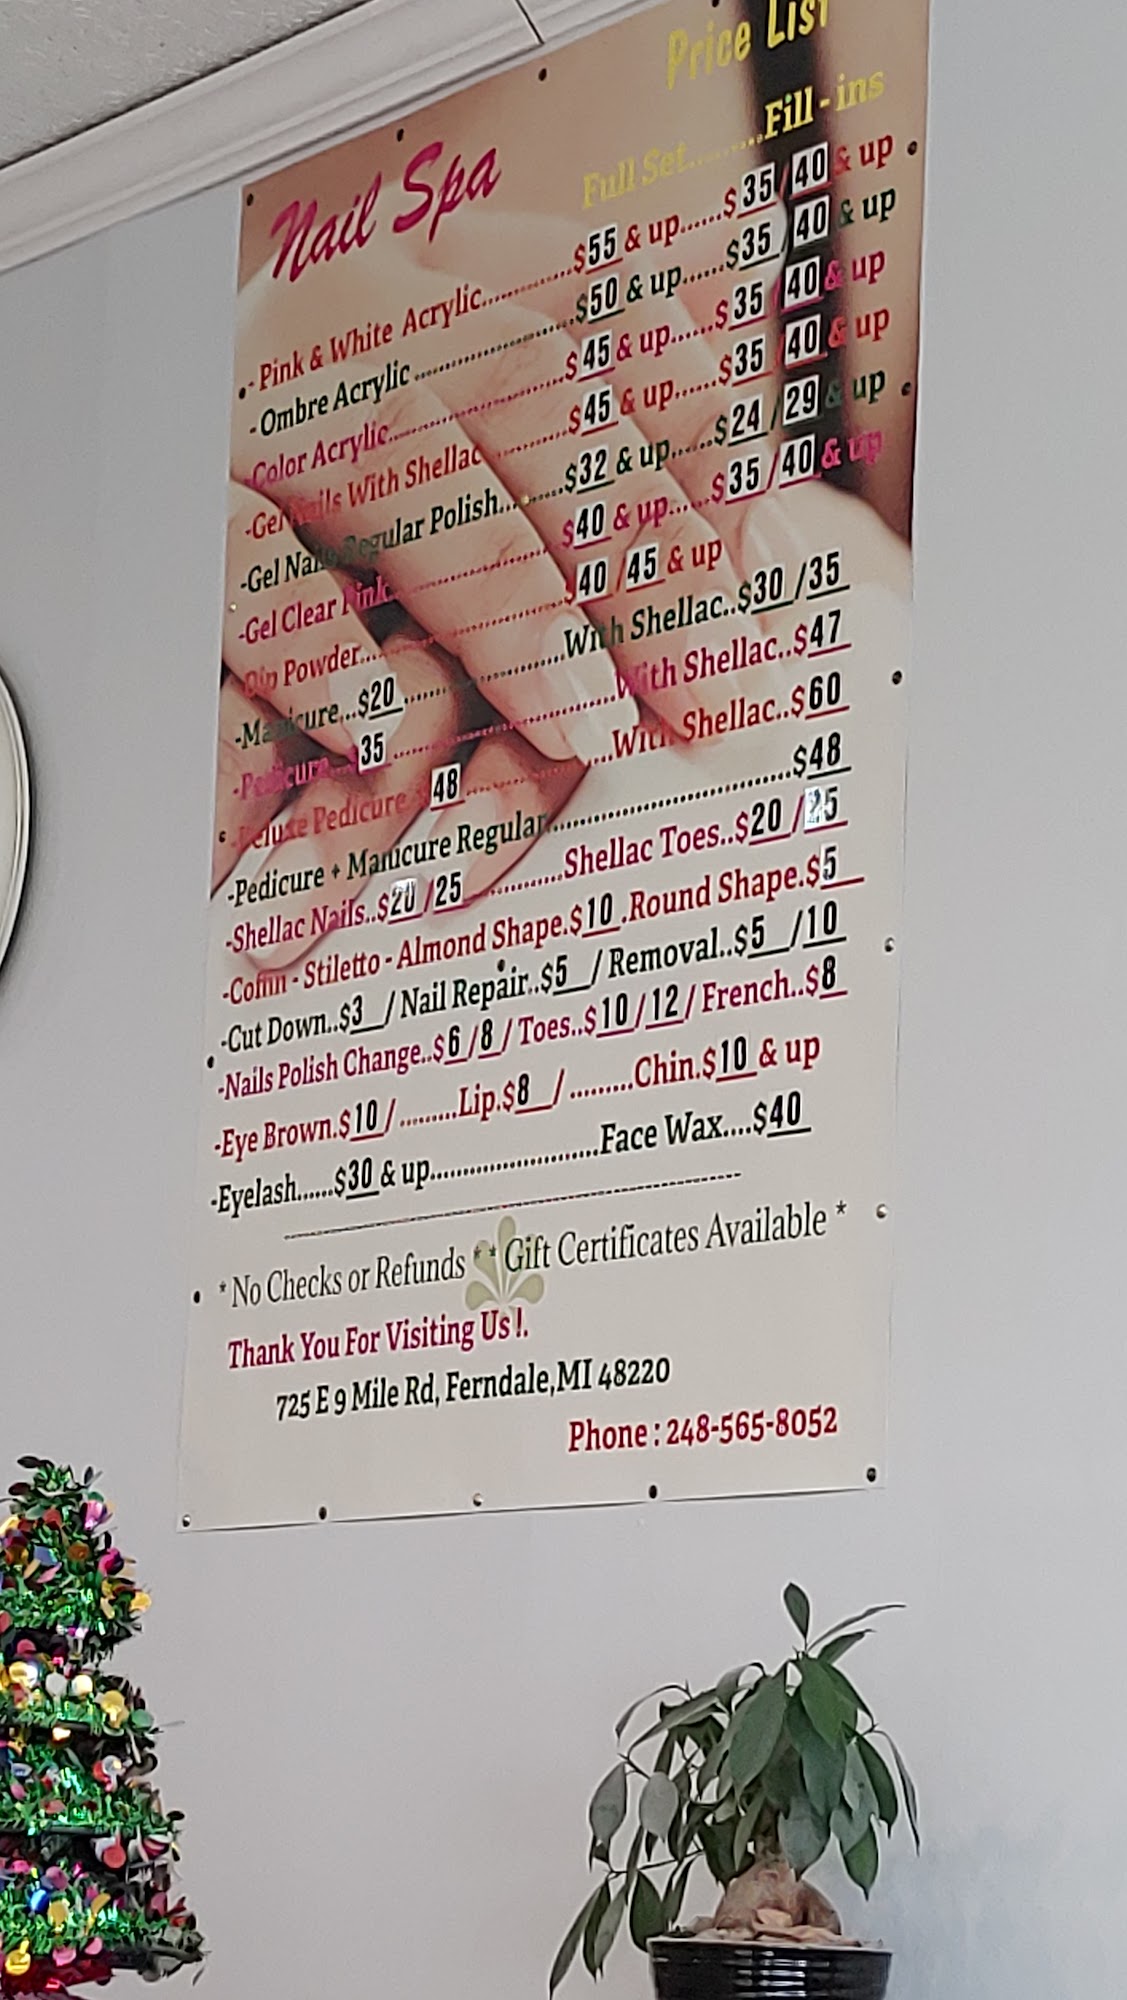 Price List
Nail Spa
Full Set.........Fill - ins
- Pink & White Acrylic.............$55 & up......$35/40 & up
-Ombre Acrylic.......................$50 & up......$35/40 & up
-Color Acrylic.........................$45 & up......$35/40 & up
-Gel Nails With Shellac............$45 & up......$35/40 & up
-Gel Nails Regular Polish..........$32 & up......$24/29 & up
-Gel Clear Pink.......................$40 & up......$35/40 & up
-Dip Powder...........................$40/45 & up
-Manicure...$20......................With Shellac..$30/35
-Pedicure...$35.......................With Shellac..$47
-Deluxe Pedicure.$48...............With Shellac..$60
-Pedicure + Manicure Regular...............................$48
-Shellac Nails..$20/25.............Shellac Toes..$20/25
-Coffin - Stiletto - Almond Shape.$10.Round Shape.$5
-Cut Down..$3 / Nail Repair..$5 / Removal..$5 /10
-Nails Polish Change..$6/8 / Toes..$10/12/ French..$8
-Eye Brown.$10/.........Lip.$8 / .........Chin.$10 & up
-Eyelash......$30 & up........................Face Wax....$40
* No Checks or Refunds * * Gift Certificates Available *
Thank You For Visiting Us !.
725 E 9 Mile Rd, Ferndale,MI 48220
Phone : 248-565-8052